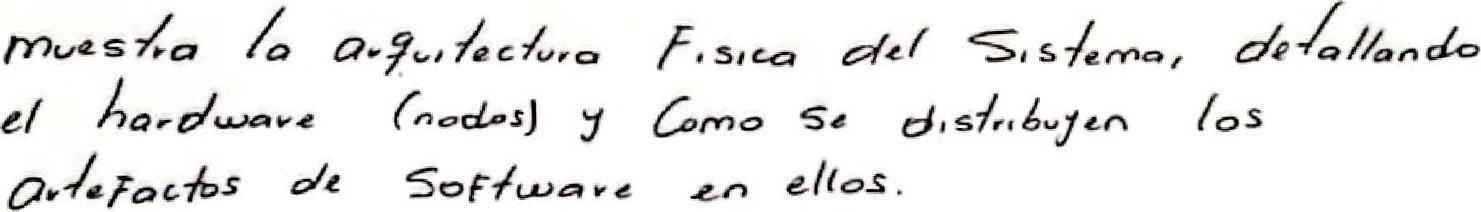 muestra la arquitectura Fisica del Sistema, detallando
el hardware (nodos) y Como se distribuyen los
arteFactos de SoFtware en ellos.